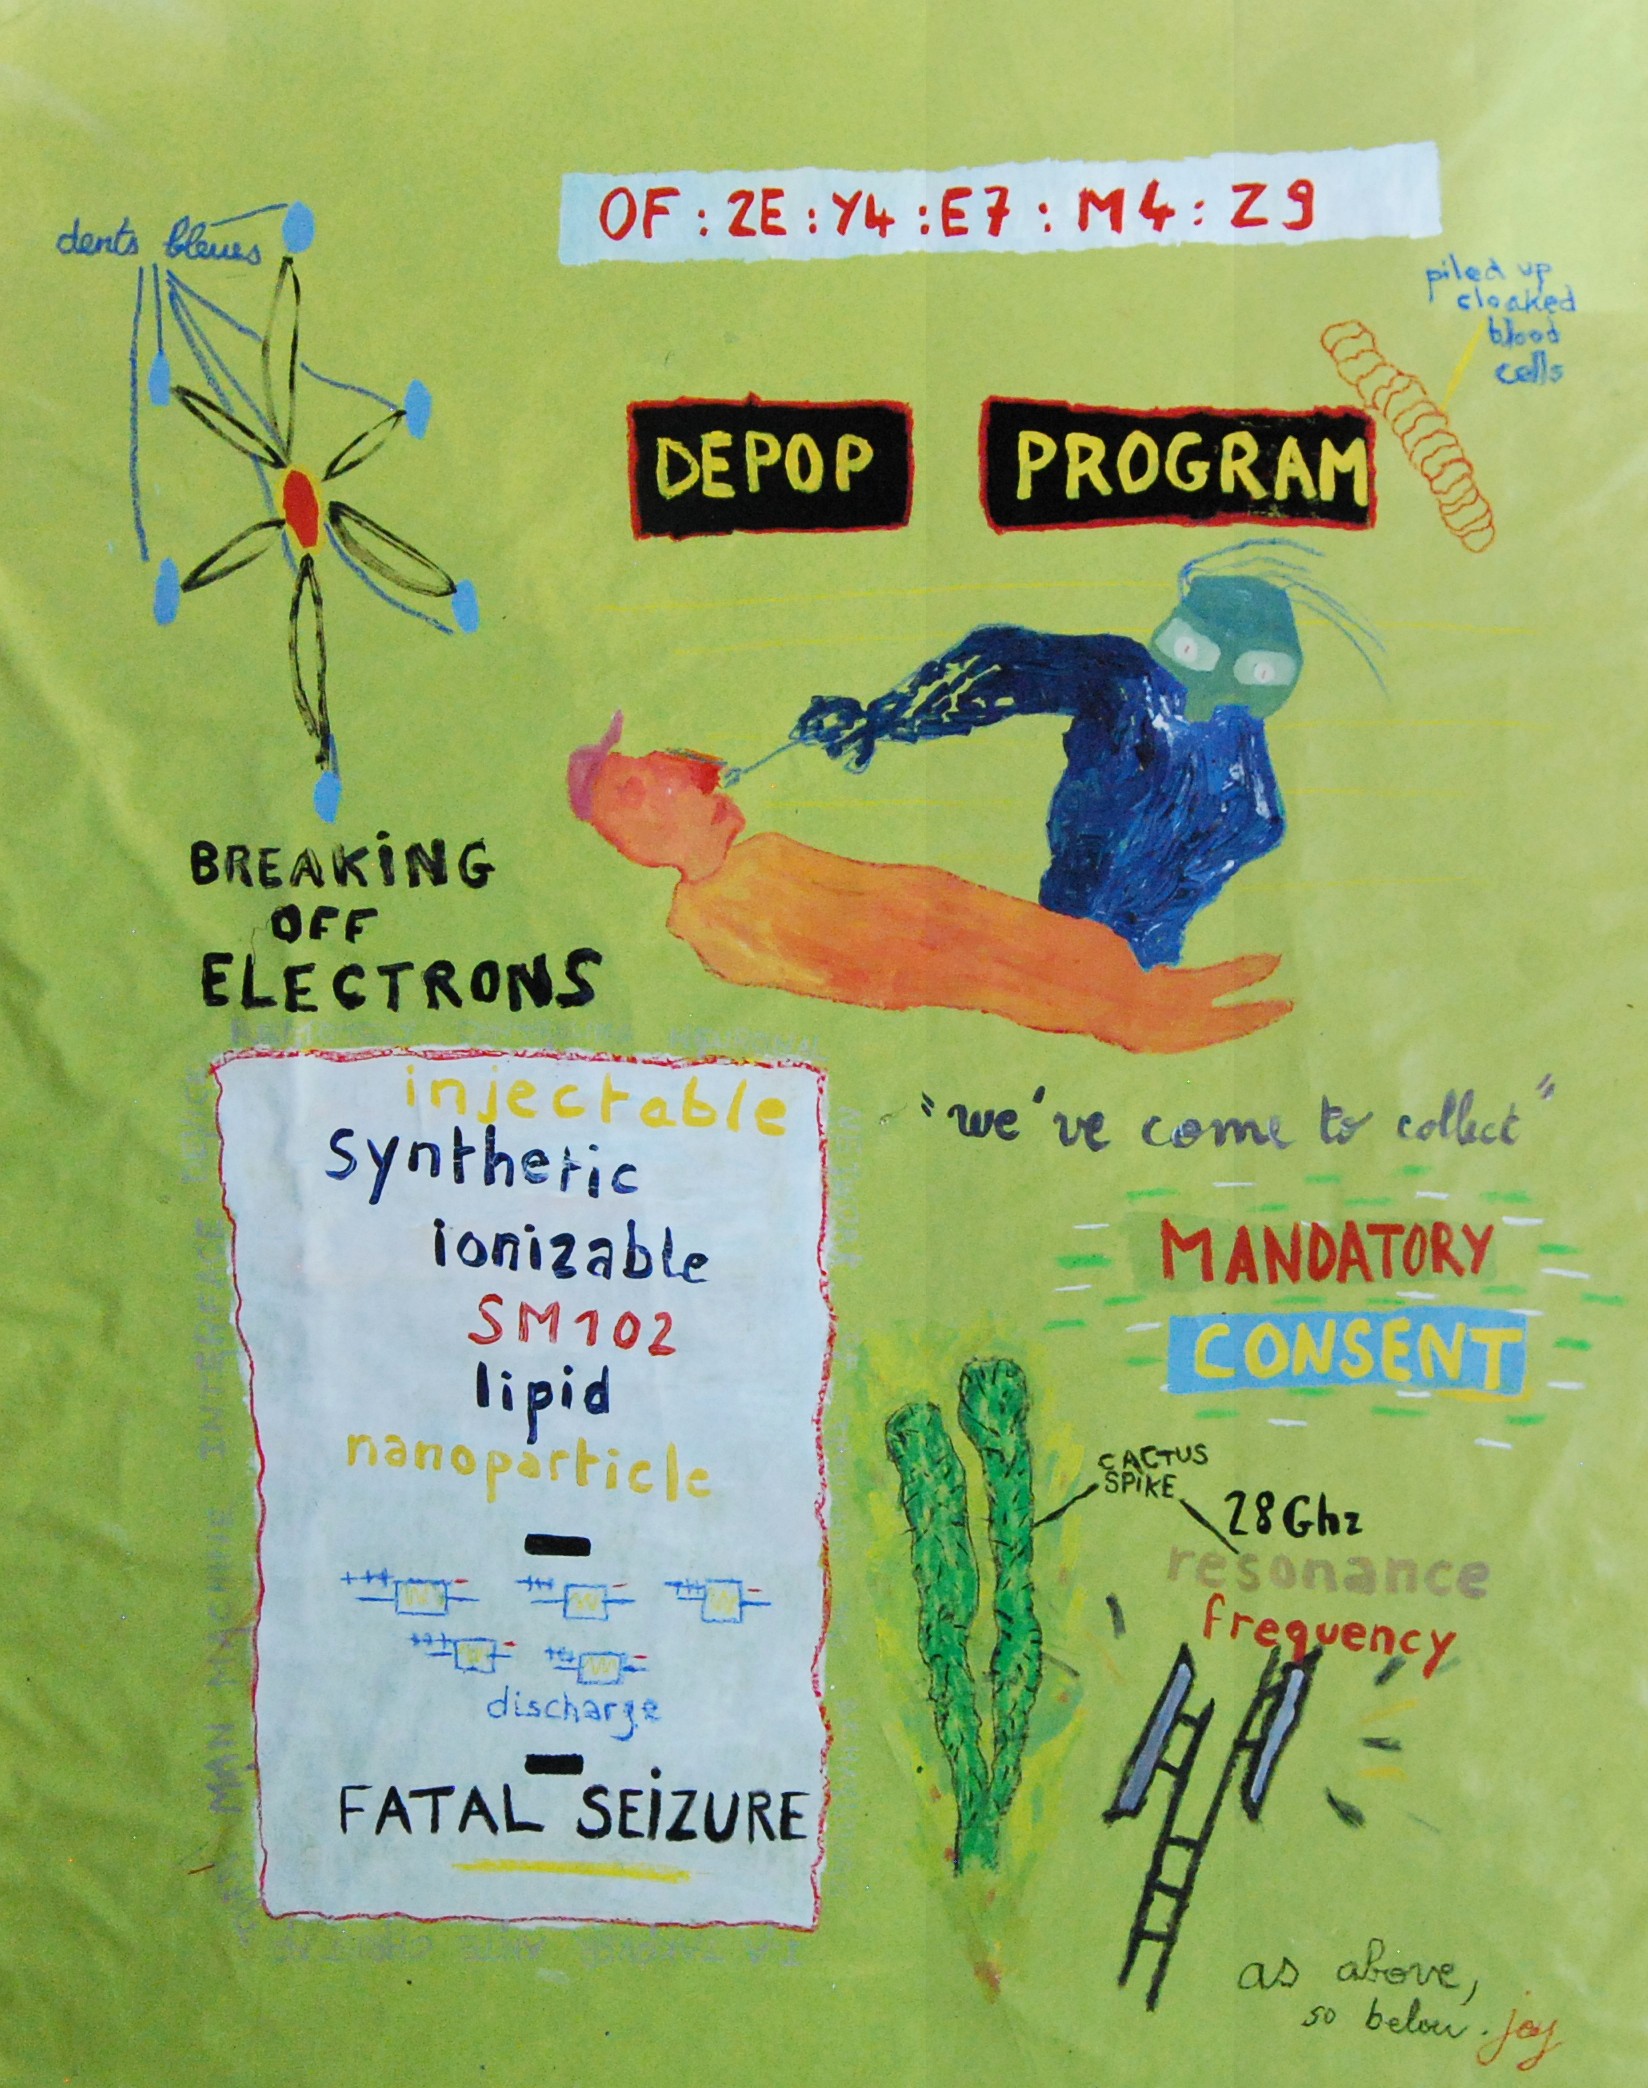 OF : 2E : Y4 : E7 : M4 : Z9
dents bleues
piled up
cloaked
blood
cells
DEPOP PROGRAM
BREAKING
OFF
ELECTRONS
"we've come to collect"
injectable
synthetic
ionizable
SM102
lipid
nanoparticle
discharge
FATAL SEIZURE
MAN MACHINE INTERFACE
MANDATORY
CONSENT
CACTUS
SPIKE
28Ghz
resonance
frequency
as above,
so below. joy